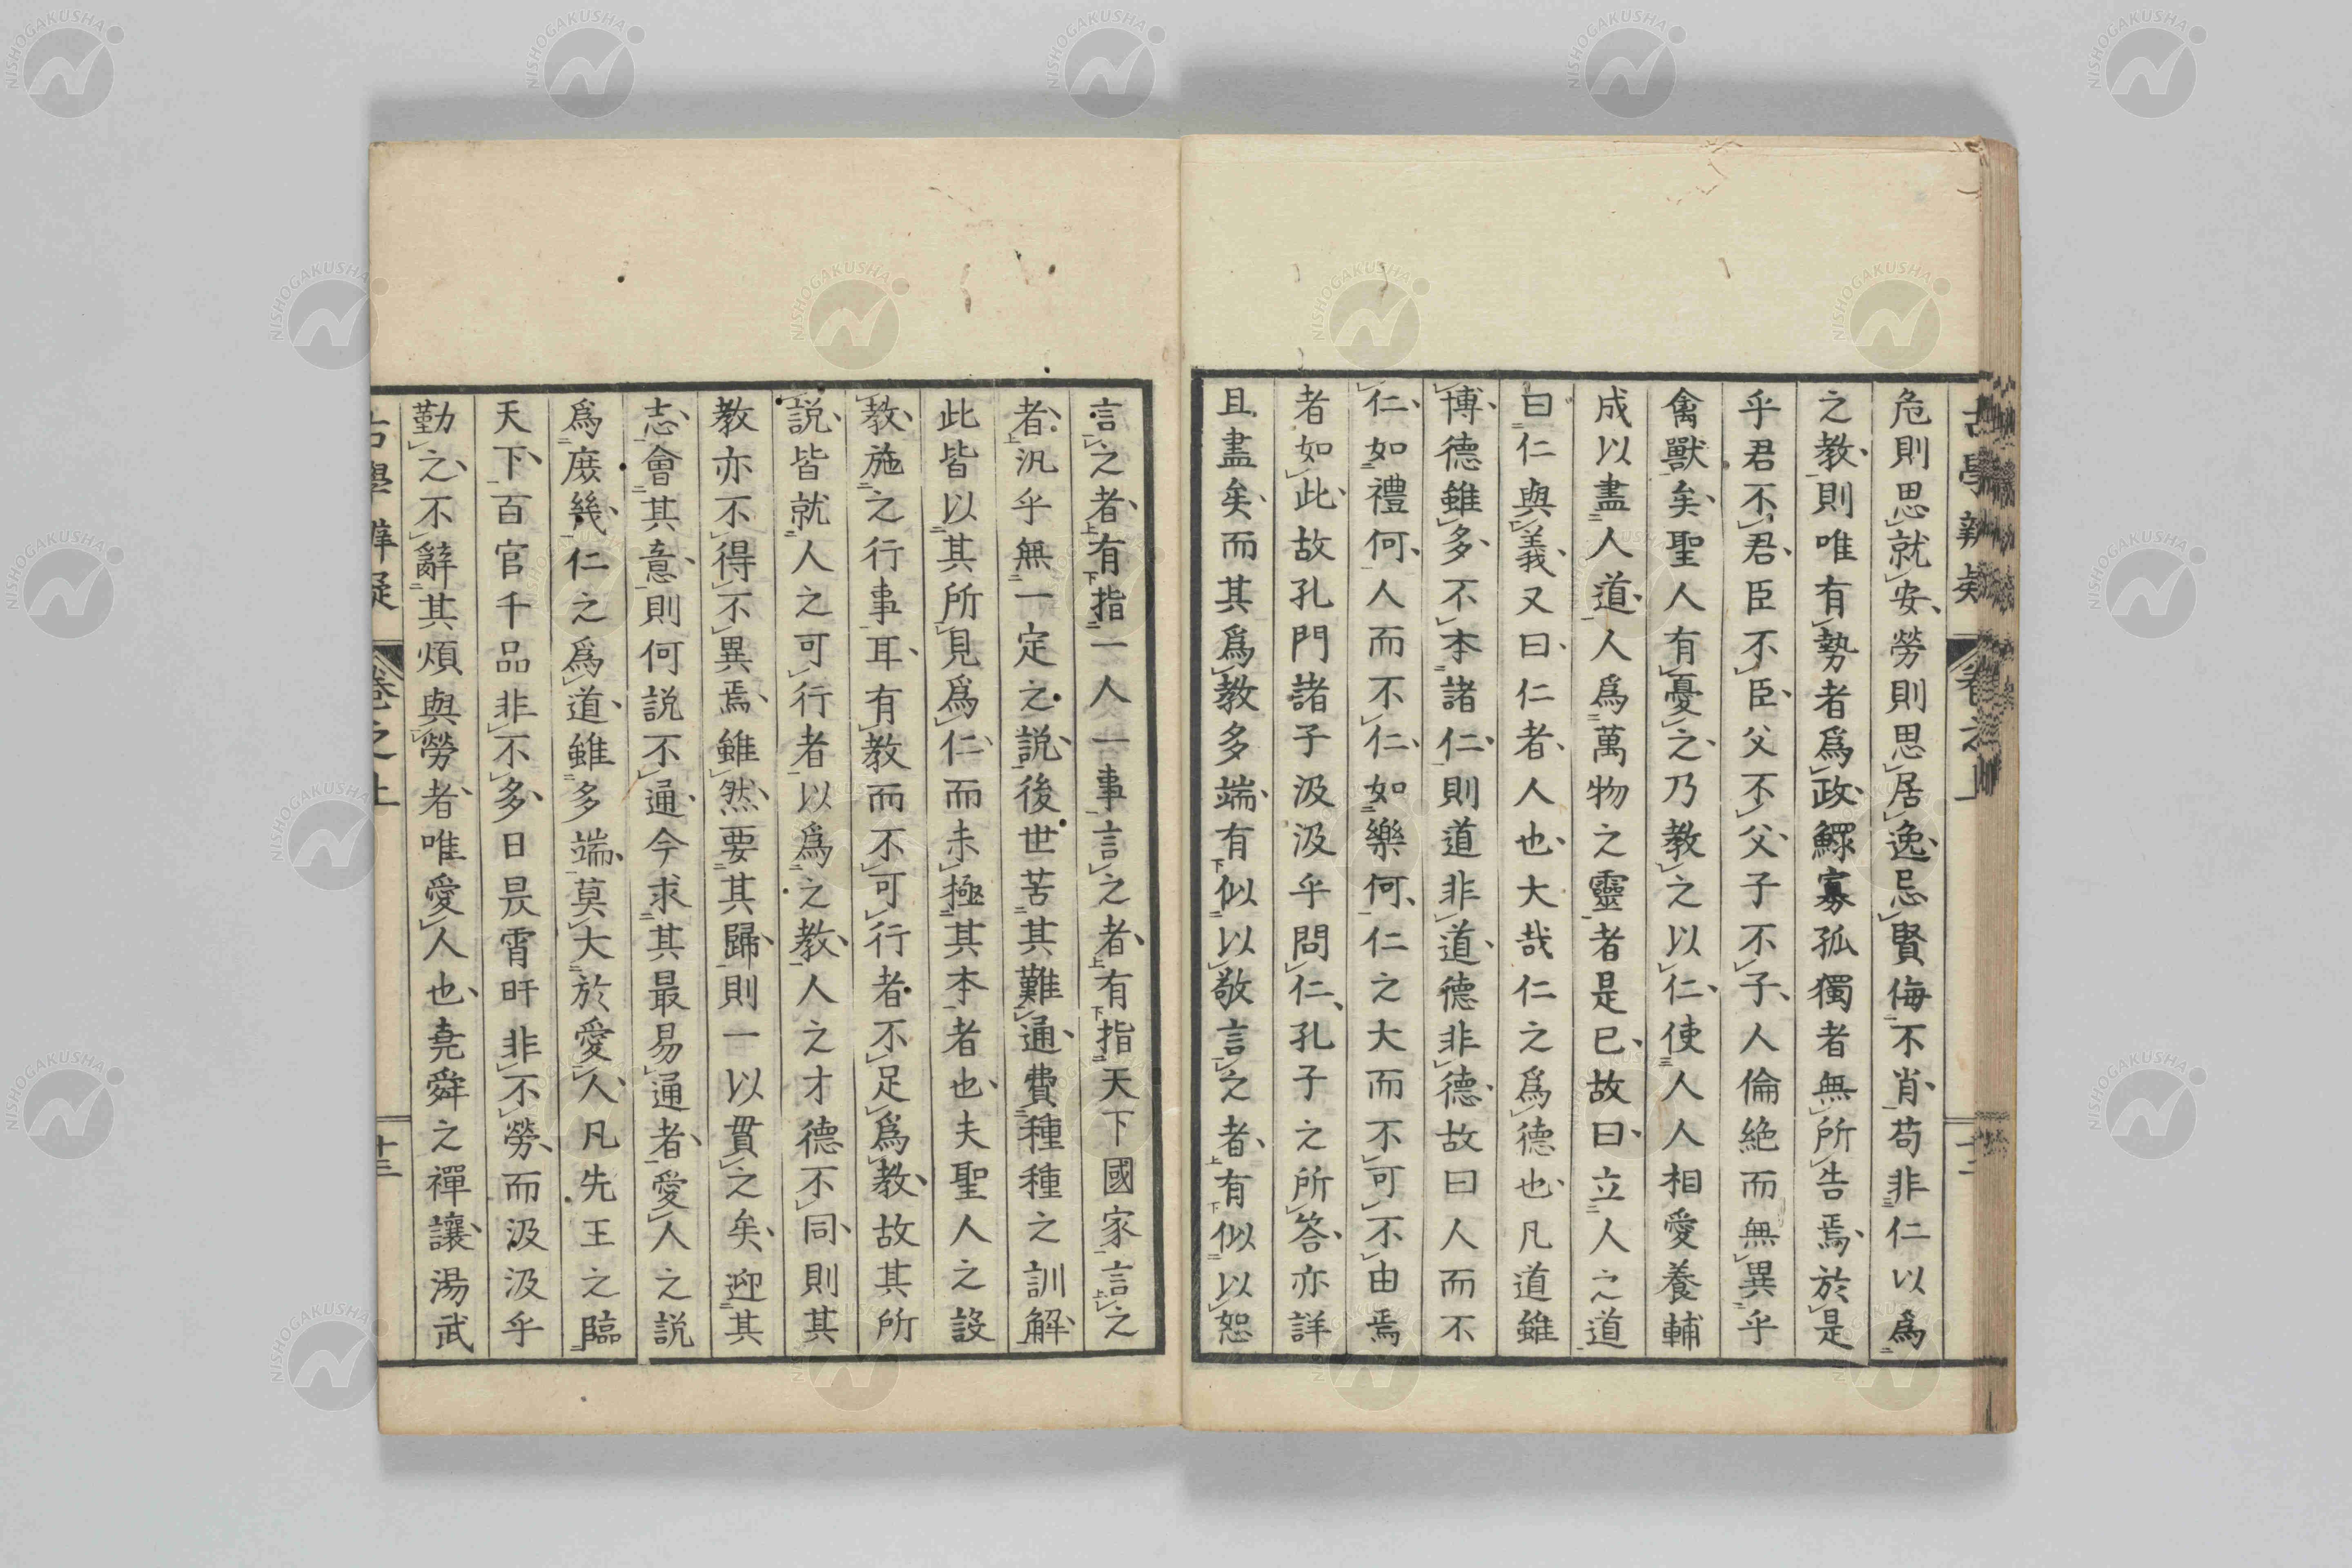 危則思就安勞則思居逸忌賢侮不肖苟非仁以爲
之教則唯有勢者爲政鰥寡孤獨者無所告焉於是
乎君不君臣不臣父不父子不子人倫絶而無異乎
禽獸矣聖人有憂之乃教之以仁使人人相愛養輔
成以盡人道人爲萬物之靈者是已故曰立人之道
曰仁與義又曰仁者人也大哉仁之爲德也凡道雖
博德雖多不本諸仁則道非道德非德故曰人而不
仁如禮何人而不仁如樂何仁之大而不可不由焉
者如此故孔門諸子汲汲乎問仁孔子之所答亦詳
且盡矣而其爲教多端有似以敬言之者有似以恕
言之者有指一人一事言之者有指天下國家言之
者汎乎無一定之說後世苦其難通費種種之訓解
此皆以其所見爲仁而未極其本者也夫聖人之設
教施之行事耳有教而不可行者不足爲教故其所
說皆就人之可行者以爲之教人之才德不同則其
教亦不得不異焉雖然要其歸則一以貫之矣迎其
志會其意則何說不通今求其最易通者愛人之說
爲庶幾仁之爲道雖多端莫大於愛人凡先王之臨
天下百官千品非不多日昃宵旰非不勞而汲汲乎
勤之不辭其煩與勞者唯愛人也堯舜之禪讓湯武
古學辨疑 卷之上 十三
NISHOGAKUSHA